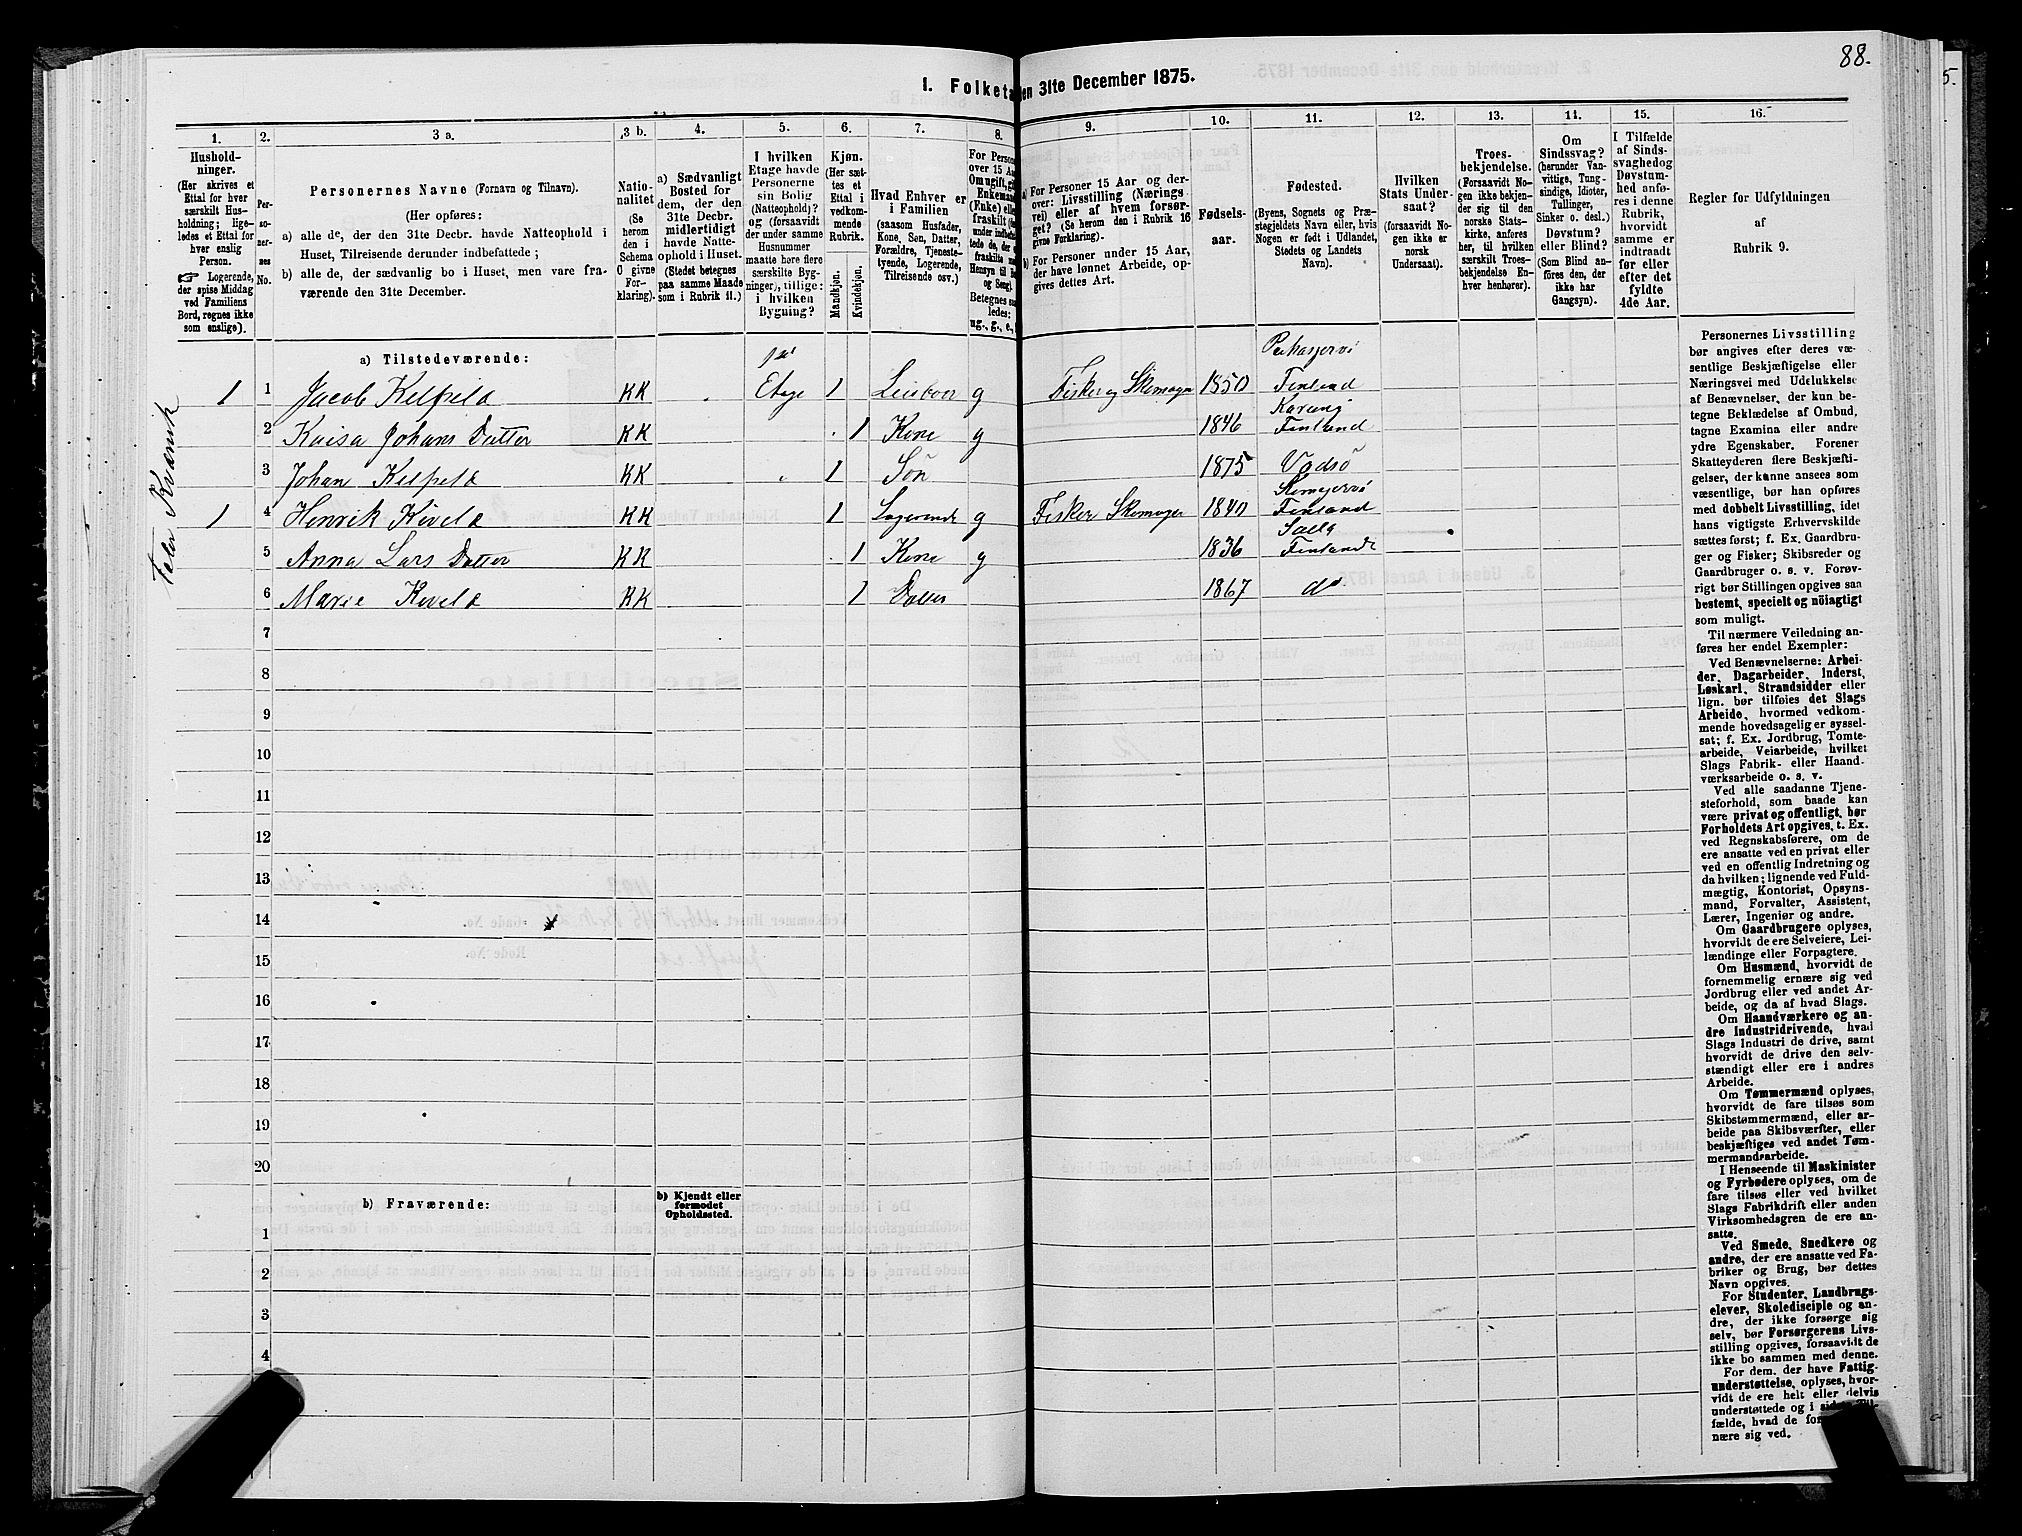 88.
5.
1. Folketæ en 31te December 1875.
1.
Hushold-
ninger.
(Her skrives et
Ettal for hver
særskilt Hus-
holdning; lige-
ledes et Ettal for
hver enslig
Person.
☞ Logerende,
der spise Middag
ved Familiens
Bord, regnes ikke
som enslige).
2.
Per-
so-
ner-
nes
No.
3 a.
Personernes Navne (Fornavn og Tilnavn).
(Her opføres:
a) alle de, der den 31te Decbr. havde Natteophold i
Huset, Tilreisende derunder indbefattede;
b) alle de, der sædvanlig bo i Huset, men vare fra-
værende den 31te December.
3 b.
Natio-
nalitet
(Se
herom
den i
Schema
O givne
For-
klaring).
4.
a) Sædvanligt
Bosted for
dem, der den
31te Decbr.
midlertidigt
havde Natte-
ophold i Huset.
(Stedet betegnes
paa samme Maade
som i Rubrik 11.)
5.
I hvilken
Etage havde
Personerne
sin Bolig
(Natteophold)?
og (forsaavidt
der under samme
Husnummer
maatte høre flere
særskilte Byg-
ninger), tillige:
i hvilken
Bygning?
6.
Kjøn.
(Her sæt-
tes et
Ettal i
vedkom-
mende
Rubrik.
Mandkjøn.
Kvindekjøn.
7.
Hvad Enhver er
i Familien
(saasom Husfader,
Kone, Søn, Datter,
Forældre, Tjeneste-
tyende, Logerende,
Tilreisende osv.)
8.
For Person
over 15 Aa
Om ugift, gi
Enkeman
(Enke) elle
fraskilt
Betegnes saa
ledes:
ug., g., e.,
9.
a) For Personer 15 Aar og der-
over: Livsstilling (Nærings
vei) eller af hvem forsør-
get? (Se herom den i Rubrik 16
givne Forklaring).
b) For Personer under 15 Aar,
der have lønnet Arbeide, op-
gives dettes Art.
10.
Fødsels-
aar.
11.
Fødested.
(Byens, Sognets og Præ-
stegjeldets Navn eller, hvis
Nogen er født i Udlandet,
Stedets og Landets
Navn).
12.
Hvilken
Stats Under-
saat?
(forsaavidt No-
gen ikke er
norsk
Undersaat).
13.
Troes-
bekjendelse.
(Forsaavidt No-
gen ikke bekjen-
der sig til den
norske Stats-
kirke, anføres
her, til hvilken
særskilt Troes-
bekjendelse En-
hver henhører).
14.
Om
Sindssvag?
(herunder Van-
vittige, Tung-
sindige, Idioter,
Tullinger,
Sinker o. desl.)
Døvstum?
eller Blind?
(Som Blind an-
føres den, der
ikke har
Gangsyn).
15.
I Tilfælde
af Sinds-
svaghedog
Døvstum-
hed anfø-
res i denne
Rubrik,
hvorvidt
samme er
indtraadt
før eller
efter det
fyldte
4de Aar.
16.
Regler for Udfyldningen
af
Rubrik 9.
a) Tilstedeværende:
1 1 Jacob Kelpelä KK Etage 1 g Fisker og Skomager 1850 Finland
2 Kaisa Johans Datter KK 1 Kone g 1846 Finland
3 Johan Kelpelä KK 1 Søn 1875 Vadsö
1 4 Henrik Kivelä KK 1 Logerende g Fisker Skomager 1840 Finland
Salla
5 Anna Lars Datter KK 1 Kone g 1836 Finland
6 Marie Kivelä KK 1 Datter 1867 do
7
8
9
10
11
12
13
14
15
16
17
18
19
20
b) Fraværende:
b) Kjendt eller
formodet
Opholdssted.
1
2
3
4
Personernes Livsstilling
bør angives efter deres væ-
sentlige Beskjæftigelse eller
Næringsvei med Udelukkelse
af Benævnelser, der kun be-
tegne Beklædelse af Ombud,
tagne Examina eller andre
ydre Egenskaber. Forener
Skatteyderen flere Beskjæfti-
gelser, der kunne ansees som
væsentlige, bør han opføres
med dobbelt Livsstilling, idet
hans vigtigste Erhvervskilde
sættes først; f. Ex. Gaardbru-
ger og Fisker; Skibsreder og
Gaardbruger o. s. v. Forøv-
rigt bør Stillingen opgives saa
bestemt, specielt og nöiagtigt
som muligt.
Til nærmere Veiledning an-
føres her endel Exempler:
Ved Benævnelserne: Arbei-
der, Dagarbeider, Inderst,
Løskarl, Strandsidder eller
lign. bør tilføies det Slags
Arbeide, hvormed vedkom-
mende hovedsagelig er syssel-
sat; f. Ex. Jordbrug, Tomte-
arbeide, Veiarbeide, hvilket
Slags Fabrik- eller Haand-
værksarbeide o. s. v.
Ved alle saadanne Tjene-
steforhold, som baade kan
være privat og offentligt, bør
Forholdets Art opgives, t. Ex.
ved Regnskabsførere, om de
ere ansatte ved en privat eller
ved en offentlig Indretning og
da hvilken; lignende ved Fuld-
mægtig, Kontorist, Opsyns-
mand, Forvalter, Assistent,
Lærer, Ingeniør og andre.
Om Gaardbrugere oplyses,
hvorvidt de ere Selveiere, Lei-
lændinge eller Forpagtere.
Om Husmænd, hvorvidt de
fornemmelig ernære sig ved
Jordbrug eller ved andet Ar-
beide, og da af hvad Slags.
Om Haandværkere og an-
dre Industridrivende, hvad
Slags Industri de drive, samt
hvorvidt de drive den selv-
stændigt eller ere i andres
Arbeide.
Om Tømmermænd oplyses,
hvorvidt de fare tilsøs som
Skibstømmermænd, eller ar-
beide paa Skibsværfter, eller
beskjæftiges ved andet Tøm-
mermandsarbeide.
I Henseende til Maskinister
og Fyrbødere oplyses, om de
fare tilsøs eller ved hvilket
Slags Fabrikdrift eller anden
Virksomhedsgren de ere an-
satte.
Ved Smede, Snedkere og
andre, der ere ansatte ved Fa-
briker og Brug, bør dettes
Navn opgives.
For Studenter, Landbrugs-
elever, Skoledisciple og an-
dre, der ikke forsørge sig
selv, bør Forsørgerens Livs-
stilling opgives, forsaavidt de
ikke bo sammen med denne.
For dem, der have Fattig-
understøttelse, oplyses, hvor-
vidt de ere helt eller delvis
understøttede og i
fælde, hvad de
nære sig ved.